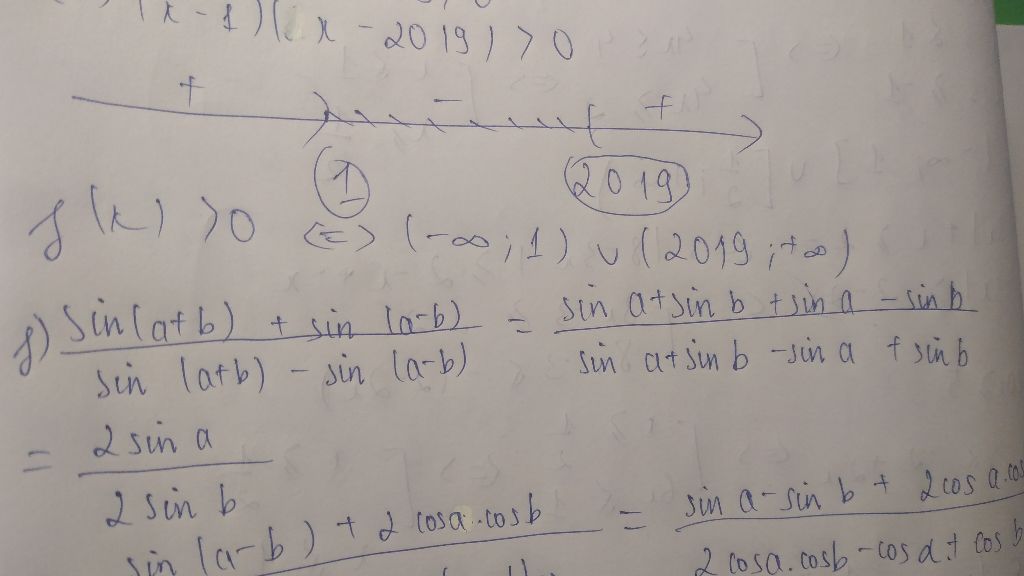 (x - 1)(x - 2019) > 0
+ - +
1 2019
f(x) > 0 <=> (-∞; 1) ∪ (2019; +∞)
f) sin(a+b) + sin(a-b) / sin(a+b) - sin(a-b) = sin a + sin b + sin a - sin b / sin a + sin b - sin a + sin b
= 2 sin a / 2 sin b
sin(a-b) + 2 cosa.cosb = sin a - sin b + 2cos a.cos
2 cosa.cosb - cos a + cos b